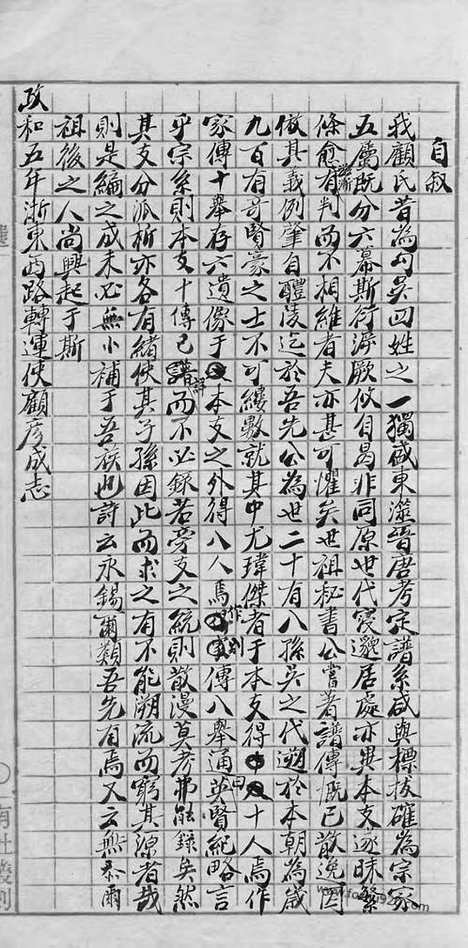 自叙
我顧氏昔為勾吳四姓之一獨盛東滋晉唐考定譜系咸與標拔確為宗家
五屬既分六幕斯衍泝厥攸自曷非同原世代寖邈居處亦異本支遂昧繁
條愈滋漸有判而不相維者夫亦甚可懼矣世祖秘書公嘗著譜傳慨已散逸因
倣其義例肇自醴陵迄於吾先公為世二十有八孫吳之代遡於本朝為歲
九百有奇賢豪之士不可縷數就其中尤瑋傑者于本支得十人焉作
家傳十舉存六遺像于本支之外得八人焉作別傳八舉通曰英賢紀略言
乎宗系則本支十傳已譜詳而不必録若旁支之統則散漫莫考弗能録矣然
其支分派析亦各有緒使其子孫因此而求之有不能溯流而窮其源者哉
則是編之成未必無小補于吾族也詩云永錫爾類吾先有焉又云無忝爾
祖後之人尚興起于斯
政和五年浙東西路轉運使顧彥成志